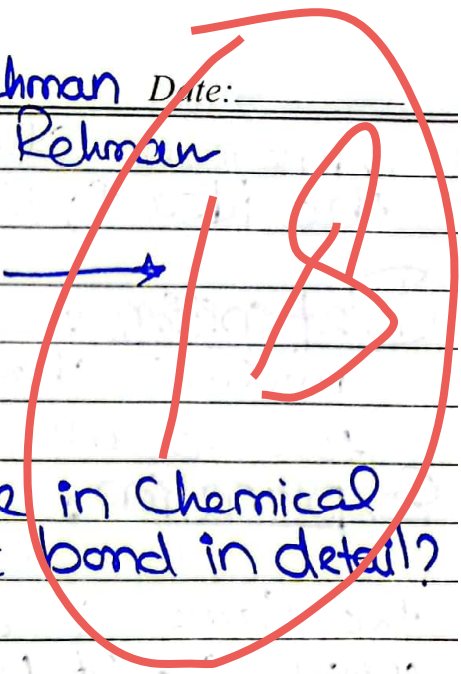 hman Date:
Rehman
18
e in Chemical
bond in detail?